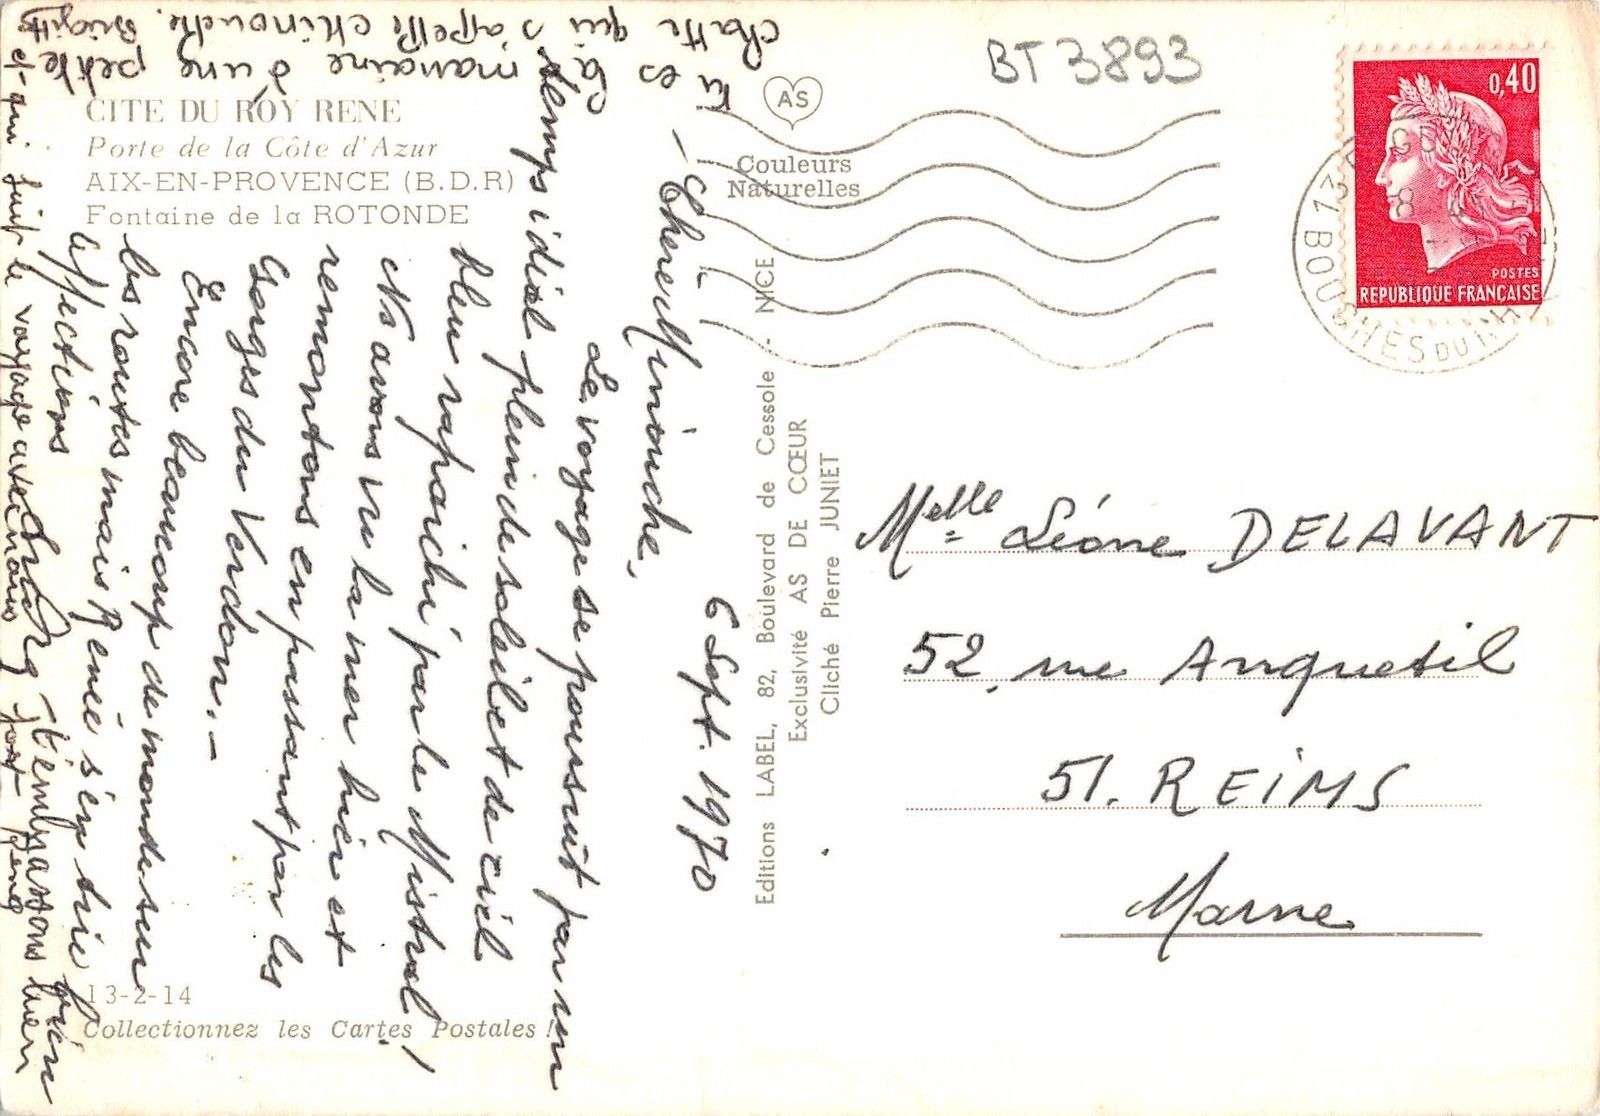 CITE DU ROY RENE
Porte de la Côte d'Azur
AIX-EN-PROVENCE (B.D.R)
Fontaine de la ROTONDE
6 Sept. 1970
Chère Minouche,
Le voyage se poursuit par un
temps idéal plein de soleil et de ciel
bleu rafraichi par le Mistral!
Ns avons vu la mer hier et
remontons en passant par les
Gorges du Verdon.-
Encore beaucoup de monde sur
les routes mais Renée s'en tire bien
Affections
t'embrassons bien
fort
René
et qui suit le voyage avec nous
Tu es la marraine d'une petite
chatte qui s'appelle chinouche. Brigitte
13-2-14
Collectionnez les Cartes Postales!
AS
Couleurs
Naturelles
Editions LABEL, 82, Boulevard de Cessole - NICE
Exclusivité AS DE CŒUR
Cliché Pierre JUNIET
BT 3893
0,40
POSTES
REPUBLIQUE FRANÇAISE
13 BOUCHES DU RH
Melle Léone DELAVANT
52, rue Anquetil
51. REIMS
Marne